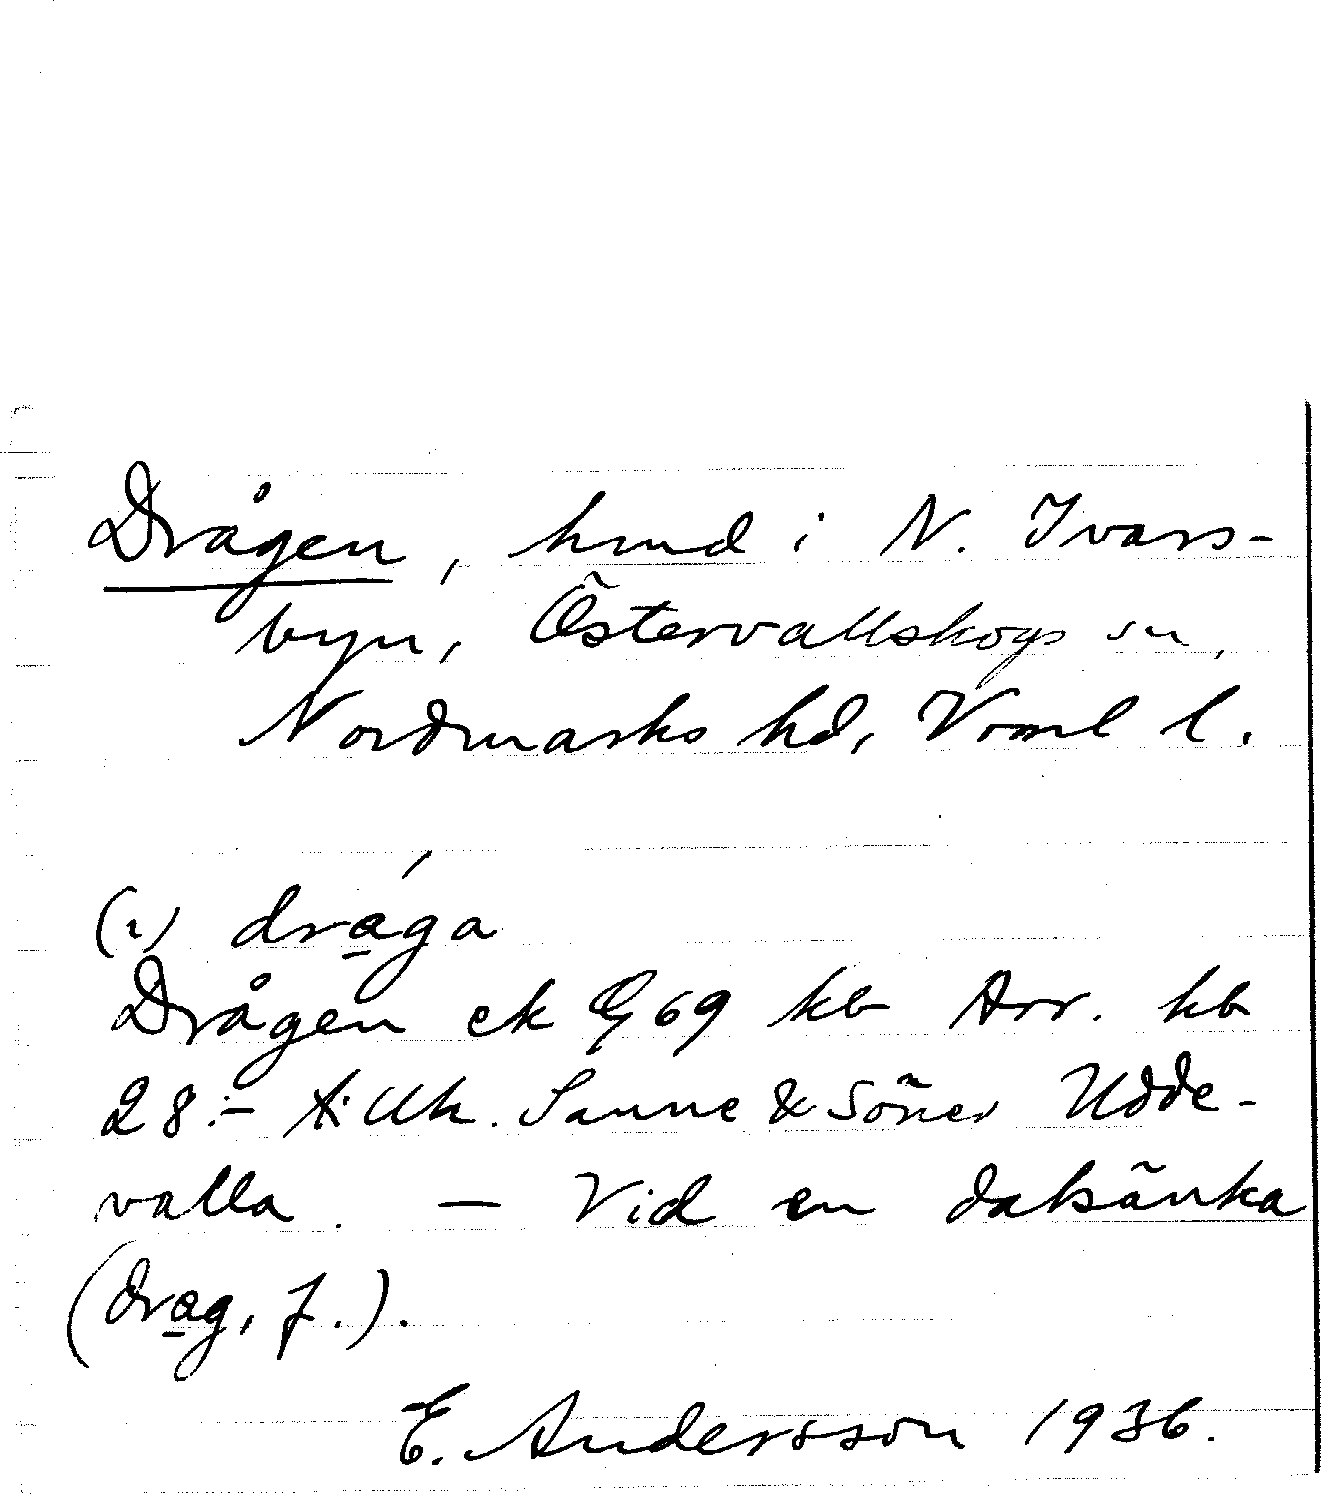 Drågen, hmd i N. Ivars-
byn, Östervallskogs sn,
Nordmarks hd, Vrml l.
(i) dra̱ga
Drågen ek G69 kb Arr. kb
28:- Sanne & Söner Udde-
valla. — Vid en dalsänka
(dra̱g, f.).
E. Andersson 1936.